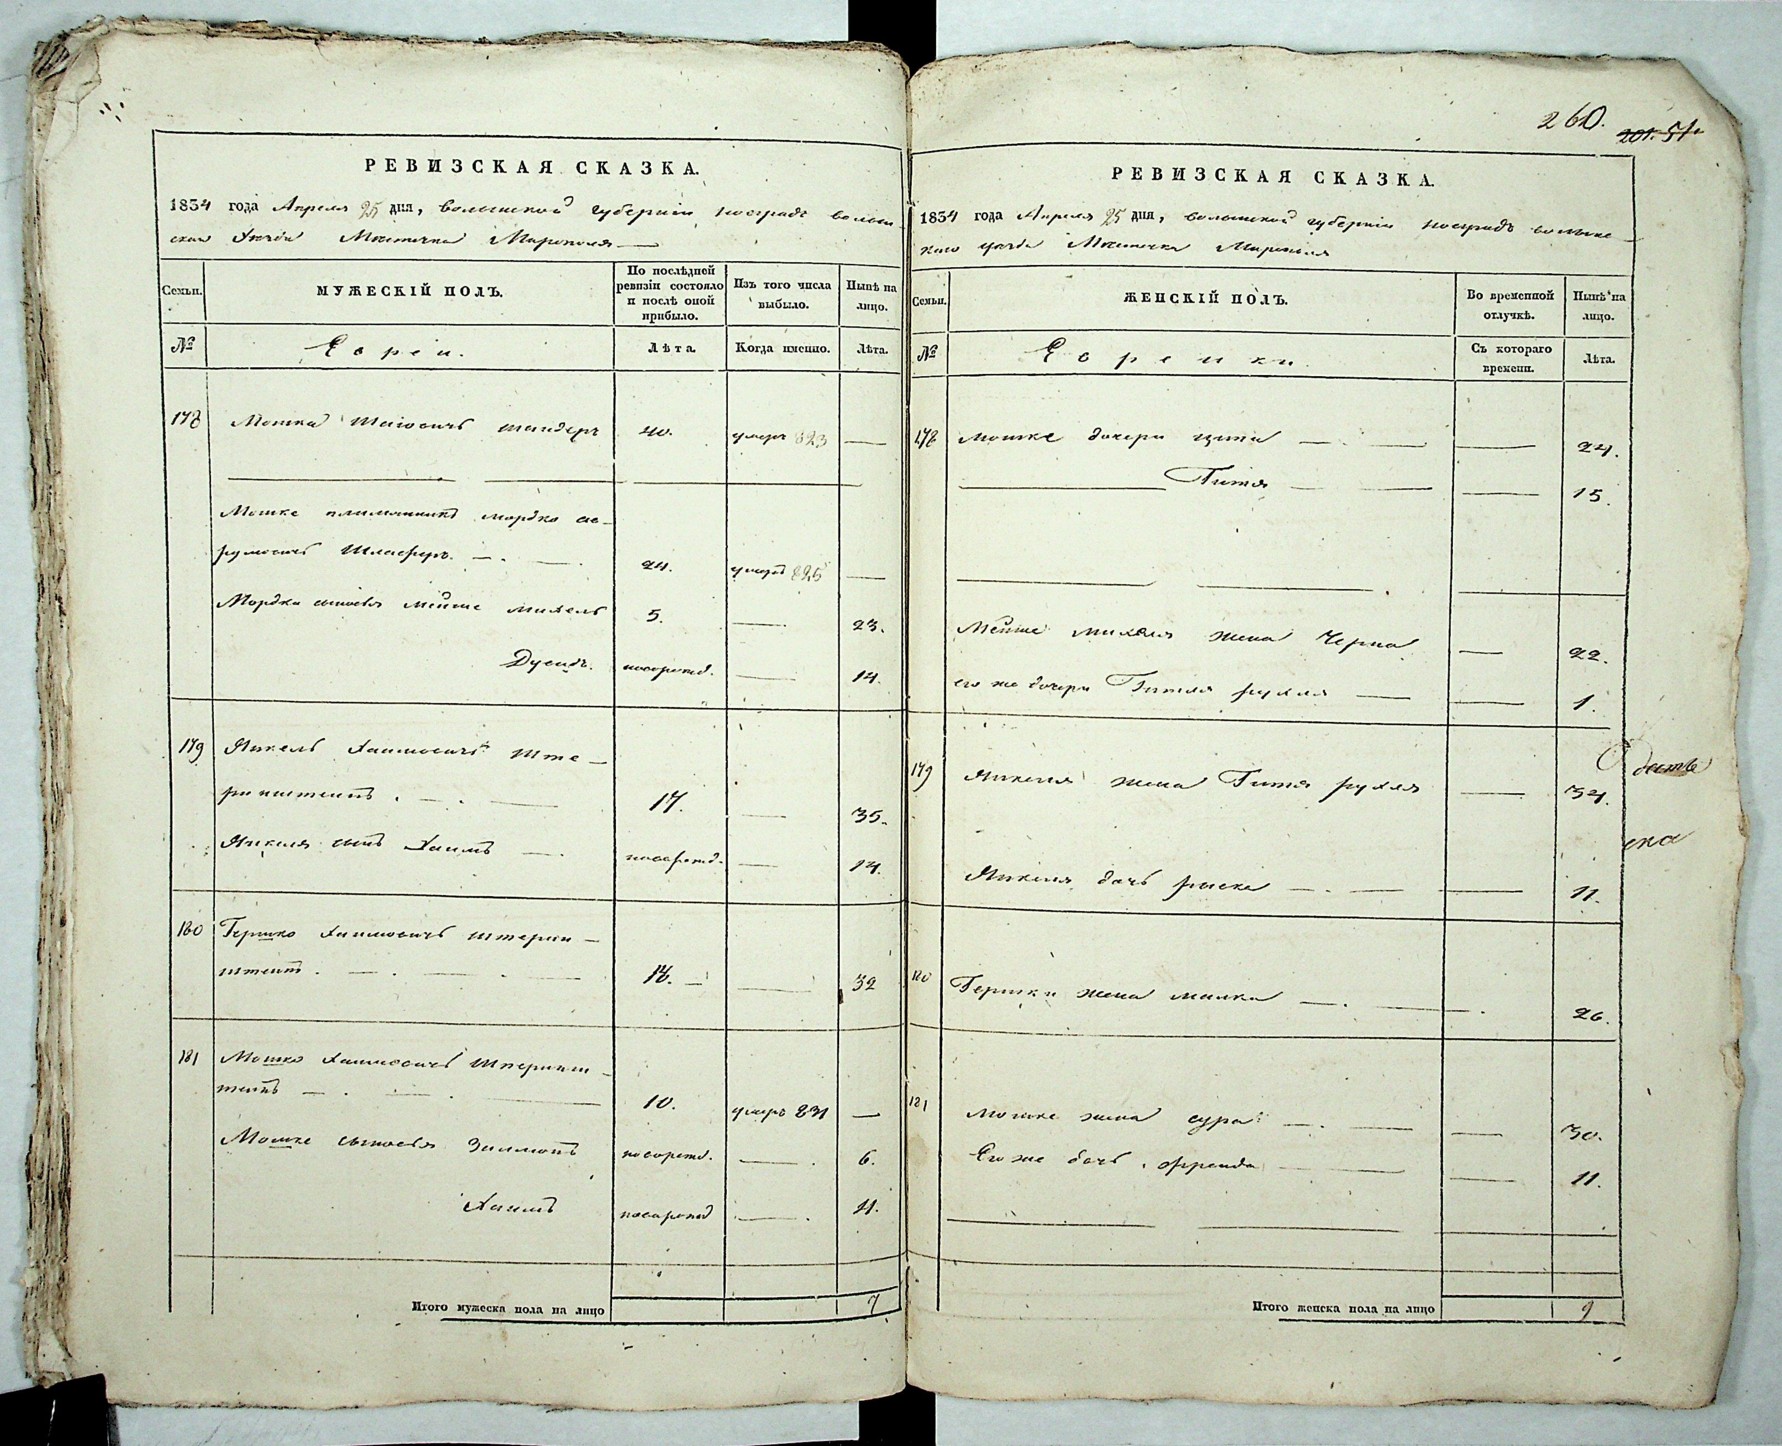 260.
201. 51.
РЕВИЗСКАЯ СКАЗКА.
1834 года Апреля 25 дня, волынской губерніи новградъ волын
скаго уезда Местечка Мирополя
Семьи.
МУЖЕСКІЙ ПОЛЪ.
По послѣдней ревизіи состояло и послѣ оной прибыло.
Изъ того числа выбыло.
Нынѣ на лицо.
№
Евреи.
Лѣта.
Когда именно.
Лѣта.
178 Мошко Шаіовичъ шандеръ 40. умеръ 823
Мошке племянникъ мордко ав-
румовичъ 24. умеръ 825
Мордки сыновья Мейше михель 5. 23.
Дувидъ. новорожд. 14.
179 Янкель Хаимовичъ Ште-
ринштейнъ. 17. 35.
Янкеля сынъ Хаимъ новорожд. 14.
180 Гершко Хаимовичъ штерин-
штейнъ. 18. 32
181 Мошко Хаимовичъ Штеринш-
тейнъ 10. умеръ 831
Мошке сыновья Залмонъ новорожд. 6.
Хаимъ новорожд 11.
Итого мужеска пола на лицо 7
РЕВИЗСКАЯ СКАЗКА.
1834 года Апреля 25 дня, волынской губерніи новградъ волынс-
каго уезда Местечка Мирополя
Семьи.
ЖЕНСКІЙ ПОЛЪ.
Во временной отлучкѣ.
Нынѣ на лицо.
№
Еврейки.
Съ котораго времени.
Лѣта.
178 Мошке дочери ципа 24.
Гитя 15.
Мейше михеля жена Черна 22.
его же дочери Гитля рухля 1.
179 Янкеля жена Гитя рухля 34.
Янкеля дочь рыска 11.
180 Гершки жена малка 26.
181 Мошке жена сура 30.
Его же дочь фрейда 11.
Итого женска пола на лицо 9